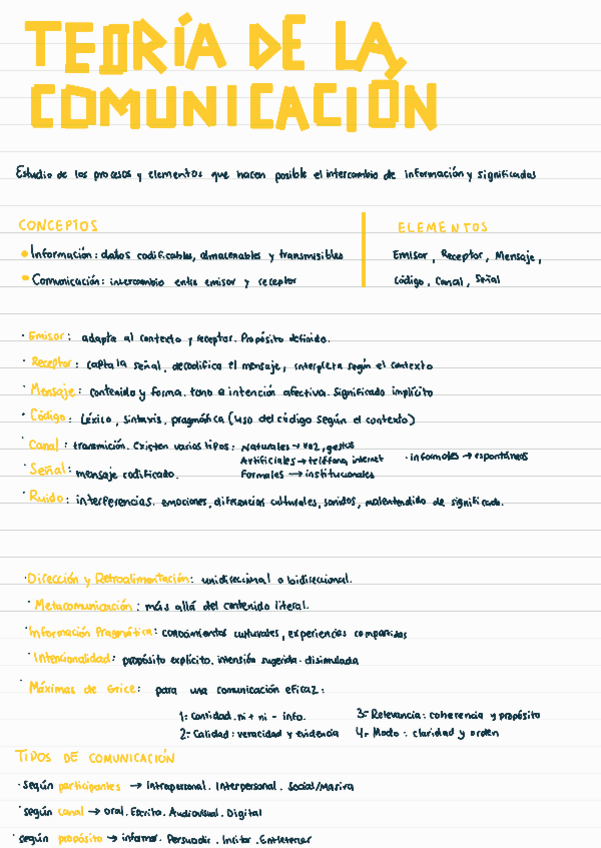 TEORÍA DE LA
COMUNICACIÓN
Estudio de los procesos y elementos que hacen posible el intercambio de información y significados
CONCEPTOS
• Información: datos codificables, almacenables y transmisibles
• Comunicación: intercambio entre emisor y receptor
ELEMENTOS
Emisor, Receptor, Mensaje,
Código, Canal, Señal
· Emisor: adapta al contexto y receptor. Propósito definido.
· Receptor: capta la señal, decodifica el mensaje, interpreta según el contexto
· Mensaje: contenido y forma. tono e intención afectiva. Significado implícito
· Código: Léxico, sintaxis, pragmática (uso del código según el contexto)
· Canal: transmición. Existen varios tipos: Naturales → voz, gestos
Artificiales → teléfono, internet · informales → espontáneos
Formales → institucionales
· Señal: mensaje codificado.
· Ruido: interferencias. emociones, diferencias culturales, sonidos, malentendido de significado.
· Dirección y Retroalimentación: unidireccional o bidireccional.
· Metacomunicación: más allá del contenido literal.
· Información Pragmática: conocimientos culturales, experiencias compartidas
· Intencionalidad: propósito explícito. intensión sugerida. disimulada
· Máximas de Grice: para una comunicación eficaz:
1= Cantidad. ni + ni - info.
2= Calidad: veracidad y evidencia
3= Relevancia: coherencia y propósito
4= Modo: claridad y orden
TIPOS DE COMUNICACIÓN
· Según participantes → Intrapersonal. Interpersonal. Social/Masiva
· según canal → oral. Escrita. Audiovisual. Digital
· según propósito → informar. Persuadir. Incitar. Entretener